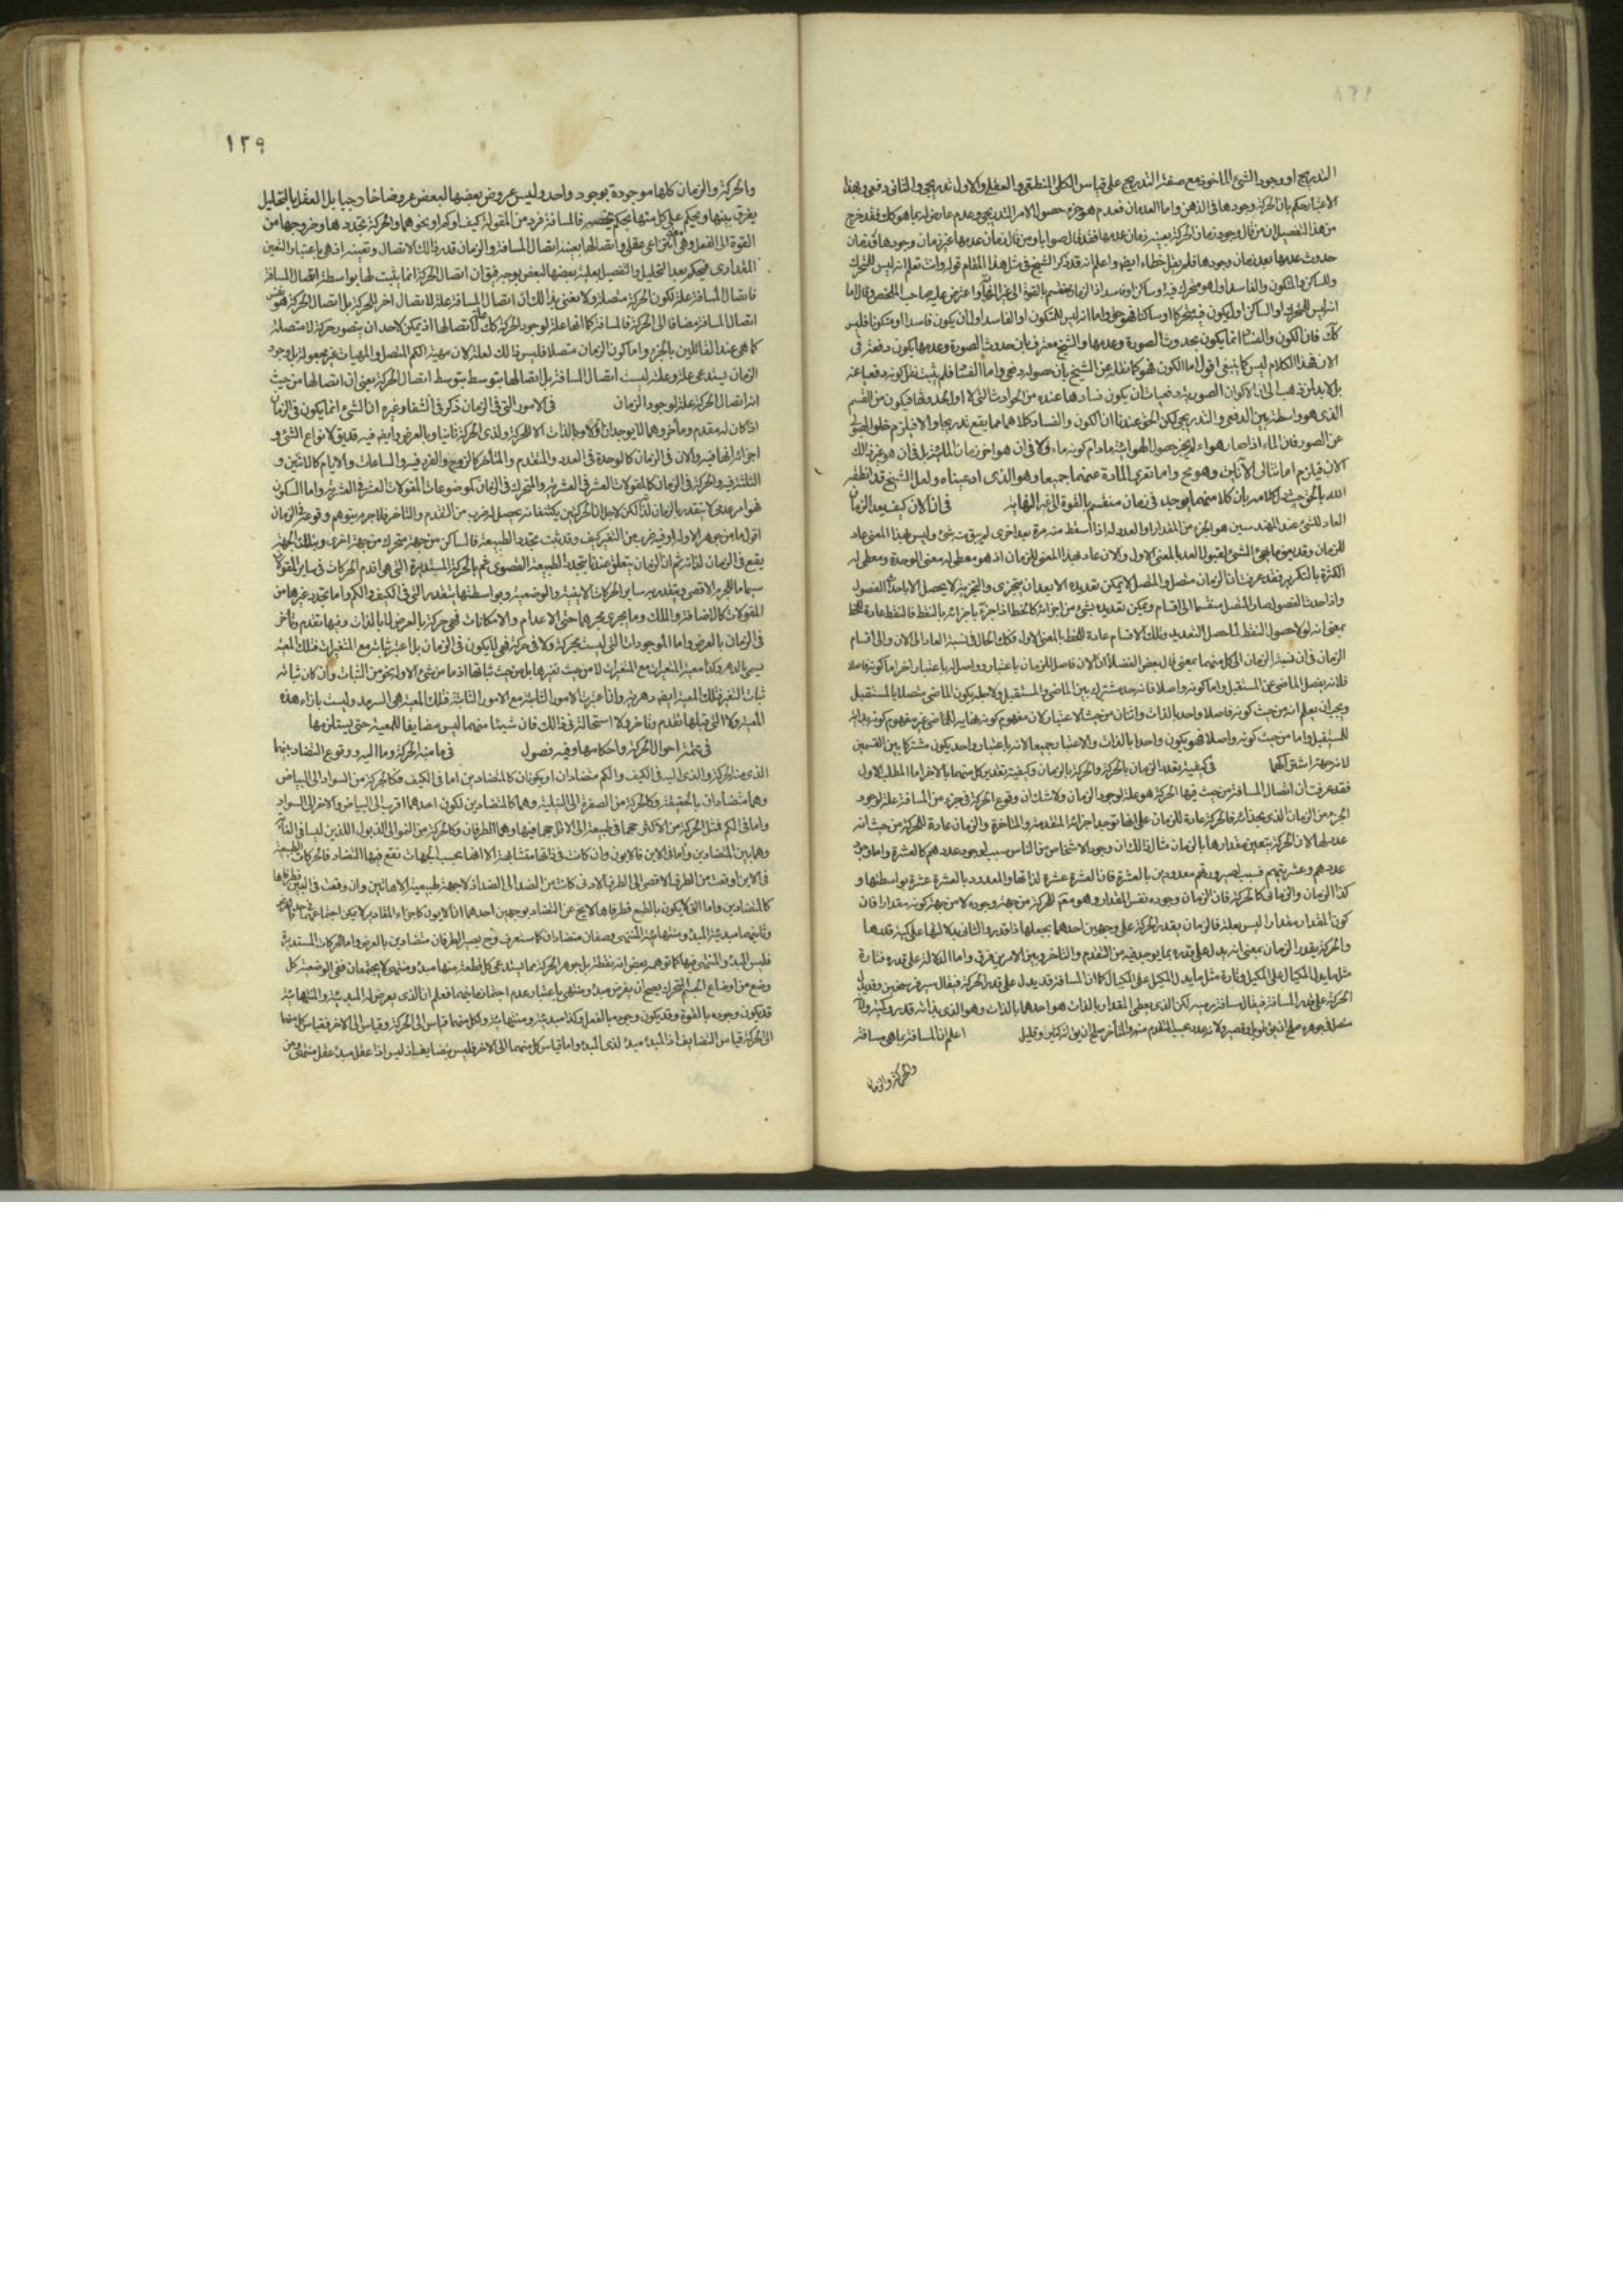 التدريج او وجود الشئ الماخوذ مع صفة التدريج على قياس الكلى المنطقى والعقلى والاول تدريجى والثانى دفعى وبهذا
الاعتبار حكم بان الحركة وجودها فى الذهن واما العدمان فعدم هو جزء حصول الامر التدريجى وعدم عارض له بما هو كك فقد خرج
من هذا التفصيل ان من قال وجود زمان الحركة بعينه زمان عدمها فقد قال صوابا ومن قال زمان عدمها غير زمان وجودها
حدوث عدمها بعد زمان وجودها فلم يقل خطاء ايض واعلم انه قد ذكر الشيخ فى مثل هذا المقام قوله وانت تعلم انه ليس للمتحرك
وللساكن وللتكون والفاسد اول هو متحرك فيه او ساكن او فاسد اذ الزمان منقسم بالقوة الى غير النهاية واعترض عليه صاحب الملخص وقال اما
انه ليس للمتحرك او الساكن اول يكون فيه متحركا او ساكنا فهو حق واما انه ليس للمتكون او الفاسد اول ان يكون فاسدا او متكونا فليس
كك فان الكون والفساد انما يكون بحدوث الصورة وعدمها والشيخ معترف بان حدوث الصورة وعدمها يكون دفعة فى
الان فهذا الكلام ليس كما ينبغى اقول اما الكون فهو كما نقله عن الشيخ بان حصوله دفعى واما الفساد فلم يثبت نقل كونه دفعيا عنه
الذى هو واسطة بين الدفعى والتدريجى لكن الحق عندنا ان الكون والفساد كلاهما مما يقع تدريجا والا فيلزم خلو الهيولى
عن الصور فان الماء اذا صار هواء لم يجز حصول الهوائية مادام كونه ماء ولا فى ان هو اخر زمان المائية بل فى ان هو غير ذلك
الان فيلزم اما تتالى الآنين وهو مح واما تعرى المادة عنهما جميعا وهو الذى ادعيناه ولعل الشيخ قد انطقه
الله بالحق حيث كلامه بان كلا منهما يوجد فى زمان منقسم بالقوة الى غير النهاية فى ان الان كيف يعد الزمان
العاد للشئ عند المهندسين هو الجزء من المقدار او العدد له اذا اسقط منه مرة بعد اخرى لم يبق منه شئ وليس بهذا المعنى عاد
للزمان وقد يعنى به الشئ لقبول العد بالمعنى الاول والان عاد بهذا المعنى للزمان اذ هو معطى له معنى الوحدة ومعطى له
الكثرة بالتكرير فقد عرفت ان الزمان متصل والمتصل لا يمكن تعديده الا بعد ان يتجزى والتجزية لا يحصل الا باحداث الفصول
واذا حدث الفصول صار المتصل منقسما الى اقسام ويمكن تعديده بشئ من اجزائه كالخط اذا جزء باجزائه بالنقط فالنقط عادة للخط
بمعنى انه لولا حصول النقط لما حصل التعديد وتلك الاقسام عادة للخط بالمعنى الاول فكك الحال فى نسبة العاد الى الان والى اقسام
الزمان فى ان نسبة الزمان الى كل منهما بمعنى قال بعض الفضلاء ان الان فاصل للزمان باعتبار وواصل له باعتبار اخر اما كونه فاصلا
فلانه يفصل الماضى عن المستقبل واما كونه واصلا فانه حد مشترك بين الماضى والمستقبل ولاجله يكون الماضى متصلا بالمستقبل
ويجب ان يعلم انه من حيث كونه فاصلا واحد بالذات واثنان من حيث الاعتبار لان مفهوم كونه نهاية للماضى غير مفهوم كونه بداية
للمستقبل واما من حيث كونه واصلا فهو يكون واحدا بالذات والاعتبار جميعا لانه باعتبار واحد يكون مشتركا بين القسمين
لانه جهة اشتراكهما فى كيفية تعدد الزمان بالحركة والحركة بالزمان وكيفية تقدير كل منهما بالاخر اما المطلب الاول
فقد عرفت ان اتصال المسافة من حيث فيها الحركة هو علة لوجود الزمان ولا شك ان وقوع الحركة فى جزء من المسافة علة لوجود
الجزء من الزمان الذى بحذائه فالحركة عادة للزمان على انها توجد اجزائه المتقدمة والمتاخرة والزمان عادة للحركة من حيث انه
عدد لها لان الحركة يتعين مقدارها بالزمان مثال ذلك ان وجود الاشخاص من الناس سبب لوجود عددهم كالعشرة واما وجود
عددهم وعشريتهم فسبب لصيرورتهم معدودين بالعشرة فان العشرة عشرة لذاتها والمعدود بالعشرة عشرة بواسطتها و
كذا الزمان والزمانى كالحركة فان الزمان وجوده نفس المقدار وهو مقدر للحركة من جهة وجوده لا من جهة كونه مقدارا فان
كون المقدار مقدارا ليس بعلة فالزمان يقدر الحركة على وجهين احدهما يجعلها ذا قدر والثانى بدلالتها على كمية قدرها
والحركة يقدر الزمان بمعنى انه يدل على قدره بما يوجد فيه من التقدم والتاخر وبين الامرين فرق واما الدلالة على قدره فتارة
مثل ما يدل المكيال على المكيل وتارة مثل ما يدل المكيل على المكيال كما ان المسافة قد يدل على قدر الحركة فيقال سير فرسخين وقد يدل
الحركة على قدر المسافة فيقال مسافة رمية لكن الذى يعطى المقدار بالذات هو احدهما بالذات وهو الذى بذاته قدر وكمية ولانه
متصل فى جوهره صلح ان يق طويل وقصير ولانه عدد بحسب المتقدم منه والمتأخر صلح ان يق انه كثير وقليل اعلم ان المسافة بما هى مسافة
والحركة والزمان
١٢٩
والحركة والزمان كلها موجودة بوجود واحد وليس عروض بعضها لبعض عروضا خارجيا بل العقل بالتحليل
يفرق بينها ويحكم على كل منها بحكم يخصه فالمسافة فرد من المقولة كيف او كم او نحوهما والحركة تجددها وخروجها من
القوة الى الفعل وهى معنى انتزاعى عقلى واتصالها بعينه اتصال المسافة والزمان قدر ذلك الاتصال وتعينه او هى باعتبار التعين
المقدارى فيحكم بعد التحليل والتفصيل بعلية بعضها لبعض بوجه فيق ان اتصال الحركة انما يثبت لها بواسطة اتصال المسافة
فاتصال المسافة علة لكون الحركة متصلة ولا يعنى بذلك ان اتصال المسافة علة لاتصال اخر للحركة بل اتصال الحركة هو نفس
اتصال المسافة مضافا الى الحركة فالمسافة كما انها علة لوجود الحركة كك علة لاتصالها اذ يمكن لاحد ان يتصور حركة لا متصلة
كما هى عند القائلين بالجزء واما كون الزمان متصلا فليس ذلك لعلة لان مهيته الكم المتصل والمهيات غير مجعولة بل وجود
الزمان يستدعى علة وعلته ليست اتصال المسافة بل اتصالها بتوسط اتصال الحركة يعنى ان اتصالها من حيث
انه اتصال الحركة علة لوجود الزمان فى الامور التى فى الزمان ذكر فى الشفا وغيره ان الشئ انما يكون فى الزمان
اذا كان له متقدم ومتأخر وهما لا يوجدان اولا وبالذات الا للحركة ولذى الحركة ثانيا وبالعرض وايض فيه قد يق لانواع الشئ و
اجزائه انها فيه والان فى الزمان كالوحدة فى العدد والمتقدم والمتأخر كالزوج والفرد فيه والساعات والايام كالاثنين و
الثلثة فيه والحركة فى الزمان كالمقولات العشر فى العشرية والمتحرك فى الزمان كموضوعات المقولات العشر فى العشرية واما السكون
فهو امر عدمى لا يتقدر بالزمان لذاته لكن لاجل ان الحركتين يكتنفانه يحصل له ضرب من التقدم والتاخر فلاجرم يتوهم وقوعه فى الزمان
اقول ما من جوهر الا وله او فيه ضرب من التغير كيف وقد ثبت تجدد الطبيعة فالساكن من جهة متحرك من جهة اخرى وبتلك الجهة
يقع فى الزمان لذاته ثم ان الزمان يتعلق عندنا بتجدد الطبيعة القصوى ثم بالحركة المستديرة التى هى اقدم الحركات فى ساير المقولات
سيما ما للجرم الاقصى ويتقدر به ساير الحركات الاينية والوضعية وبواسطتها يتقدر التى فى الكيف والكم واما تجدد غيرها من
المقولات كالاضافة والملك وما يجرى مجريهما حتى الاعدام والامكانات فهى حركة بالعرض لا بالذات وفيها تقدم وتأخر
فى الزمان بالعرض واما الموجودات التى ليست بحركة ولا فى حركة فهى لا يكون فى الزمان بل اعتبر ثباته مع المتغيرات فتلك المعية
يسمى بالدهر وكذا معية المتغيرات مع المتغيرات لا من حيث تغيرها بل من حيث ثباتها اذ ما من شئ الا وله نحو من الثبات وان كان ثباته
ثبات التغير فتلك المعية ايضا دهرية وان اعتبرت الامور الثابتة مع الامور الثابتة فتلك المعية هى السرمد وليست بازاء هذه
المعية ولا التى قبلها تقدم وتاخر ولا استحالة فى ذلك فان شيئا منهما ليس مضايفا للمعية حتى يستلزمها
فى تتمة احوال الحركة واحكامها وفيه فصول فى ما منه الحركة وما اليه ووقوع التضاد بينهما
الذى منه الحركة والذى اليه فى الكيف والكم متضادان او يكونان كالمتضادين اما فى الكيف فكالحركة من السواد الى البياض
وهما متضادان بالحقيقة وكالحركة من الصفرة الى النيلية وهما كالمتضادين لكون احدهما اقرب الى البياض والاخر الى السواد
واما فى الكم فمثل الحركة من الاكثر حجما فى طبيعته الى الاقل حجما فيها وهما الطرفان وكالحركة من النمو الى الذبول اللذين ليسا فى الغاية
وهما بين المتضادين واما فى الاين فالايون وان كانت فى ذاتها متشابهة الا انها بحسب الجهات تقع فيها التضاد فالحركات الطبيعية
فى الاين اوقعت من الطرف الاقصى الى الطرف الادنى كانت من الضد الى الضد اذ لا جهة طبيعية الا هاتين وان وقعت فى البين فطرفاها
كالمتضادين واما التى لا يكون بالطبع فطرفاها لا يخ عن التضاد بوجهين احدهما ان الايون كاجزاء المقادير لا يمكن اجتماعهما
وثانيهما مبدئية المبدء ومنتهائية المنتهى وصفان متضادان كما ستعرف وح يصير الطرفان متضادين بالعرض واما الحركات المستديرة
فليس المبدء والمنتهى فيها كما توهمه بعض انه نقطة بل جوهر الحركة مما يستدعى كل قطعة منها مبدء ومنتهى لا يجتمعان ففى الوضعية كل
وضع من اوضاع الجسم المتحرك يصح ان يفرض مبدء ومنتهى باعتبار عدم اجتماعها فعلم ان الذى يعرض له المبدئية والمنتهائية
قد يكون وجوده بالقوة وقد يكون وجوده بالفعل وكذا مبدئيته ومنتهائيته ولكل منهما قياس الى الحركة وقياس الى الاخر فقياس كل منهما
الى الحركة قياس التضايف اذ المبدء مبدء لذى المبدء واما قياس كل منهما الى الاخر فليس بتضايف اذ ليس اذا عقل مبدء عقل منتهى ومن